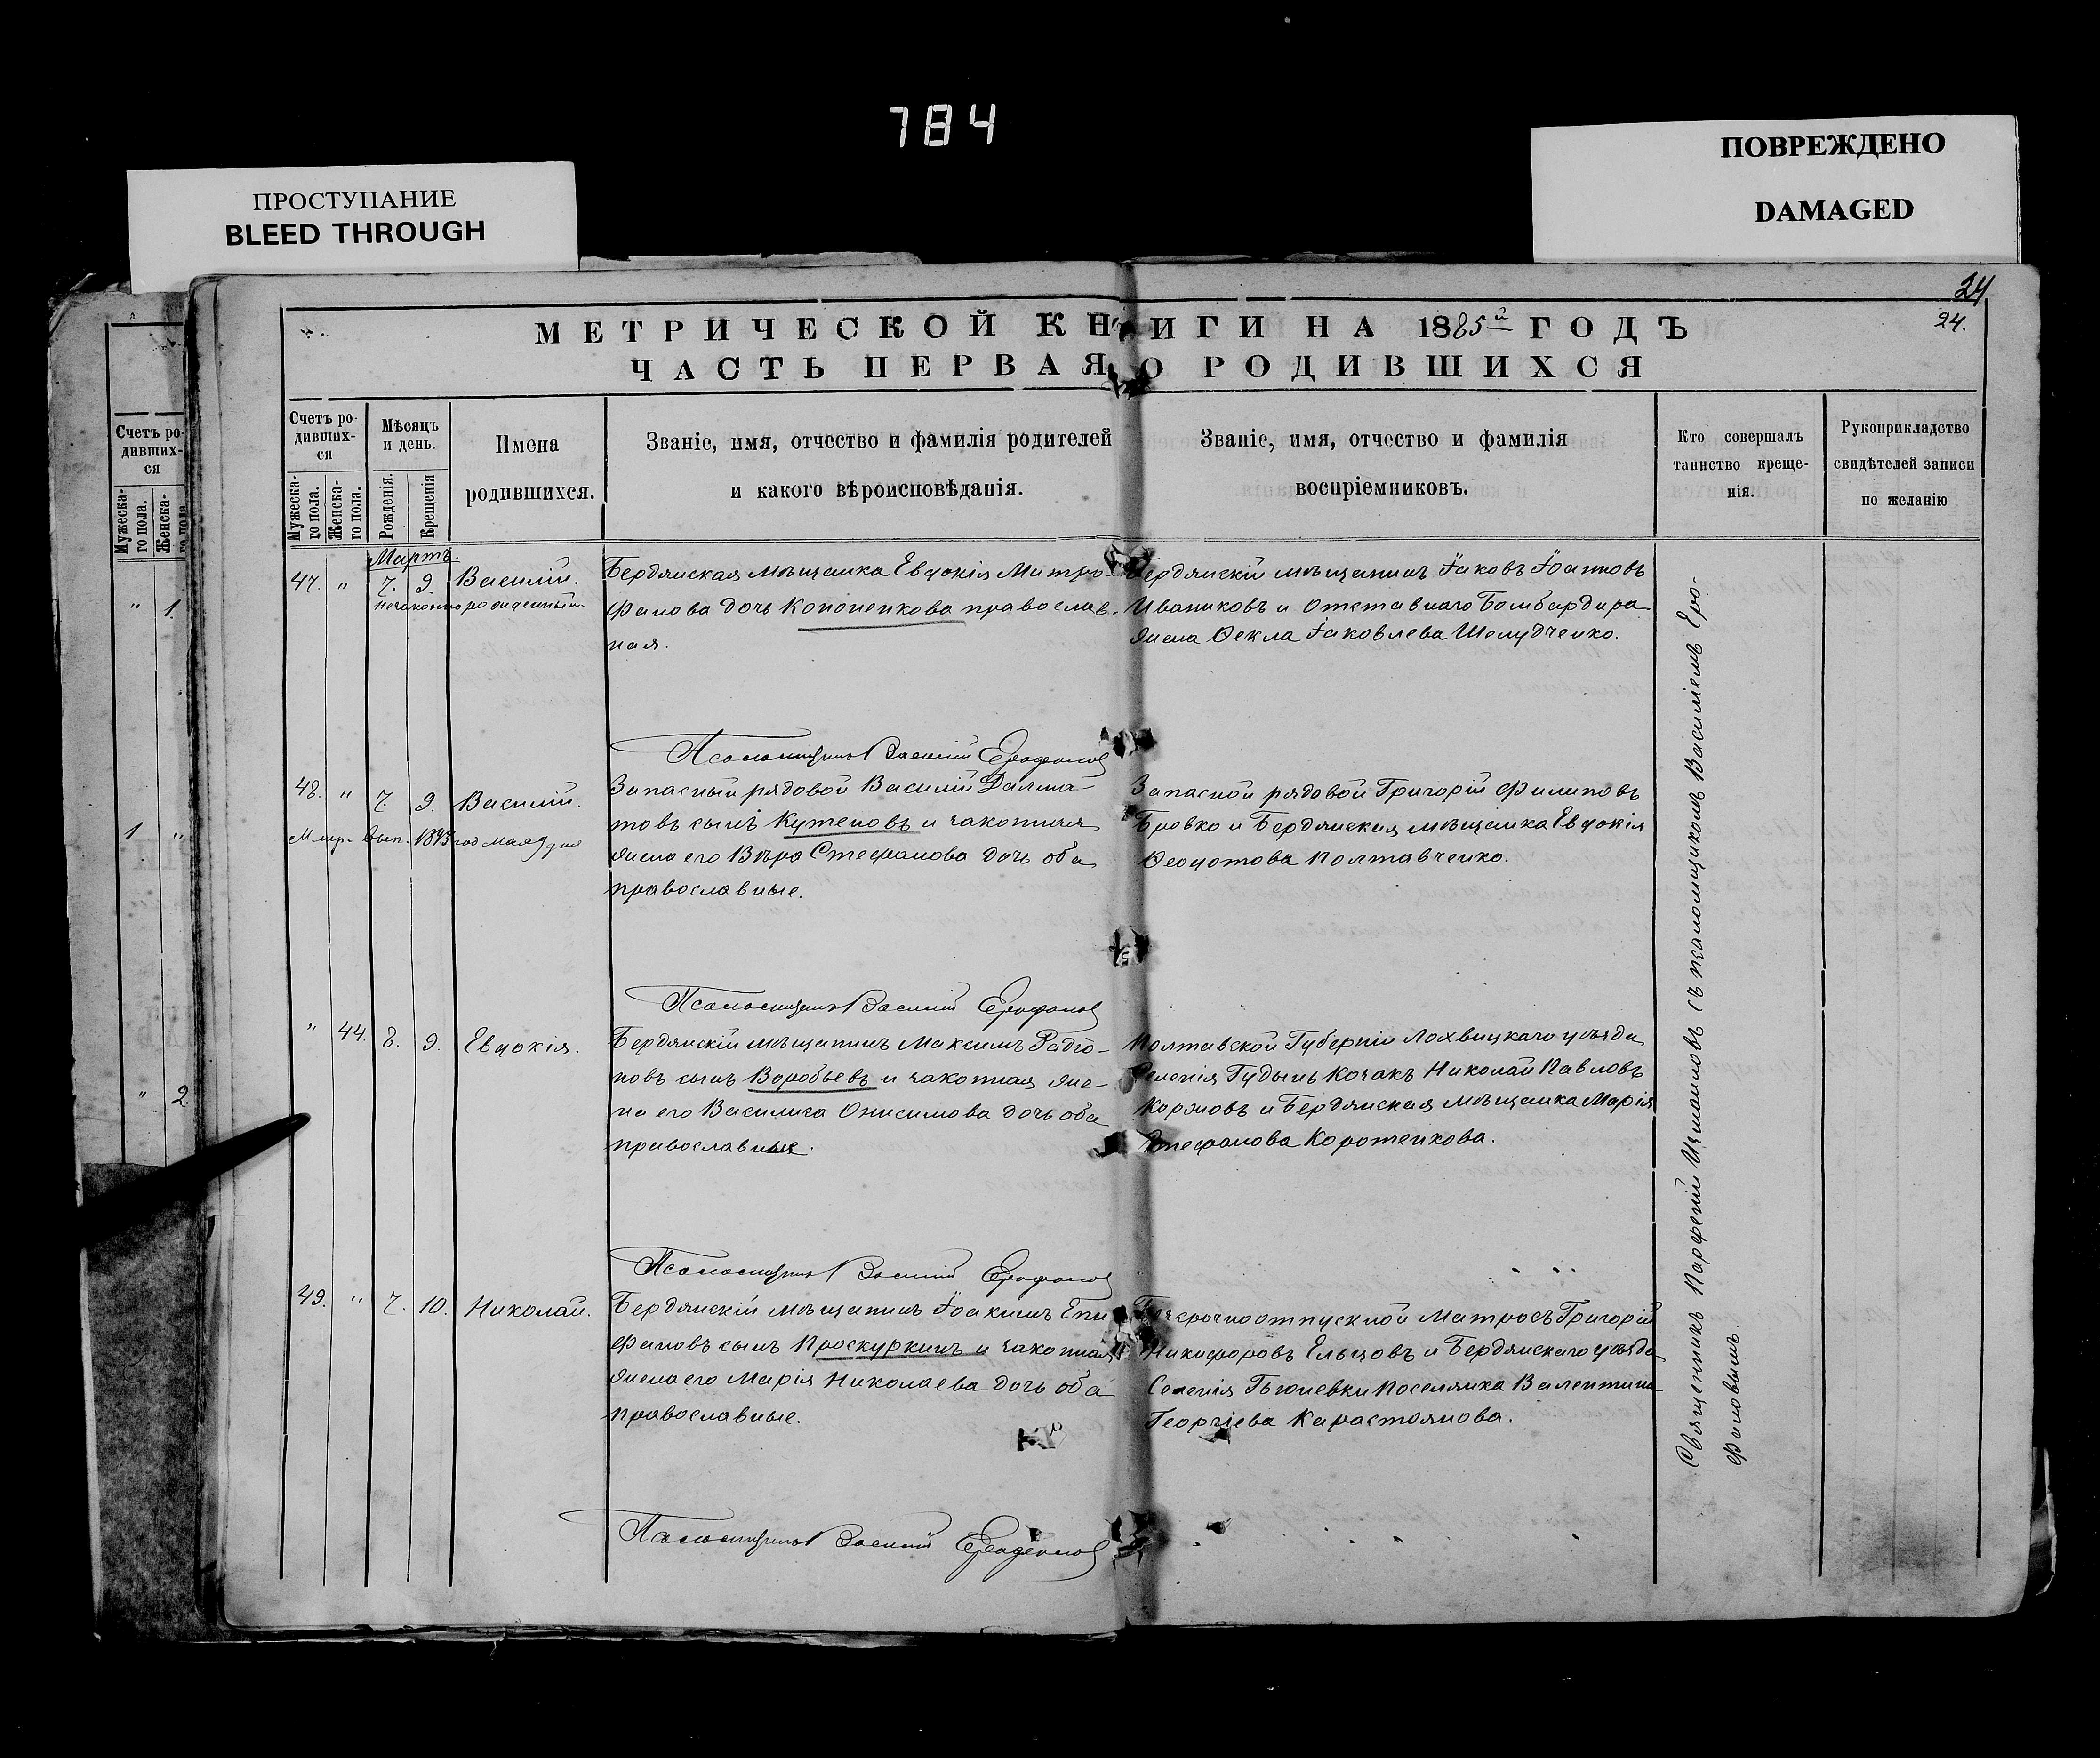 784
ПРОСТУПАНИЕ
BLEED THROUGH
ПОВРЕЖДЕНО
DAMAGED
24
24.
МЕТРИЧЕСКОЙ КНИГИ НА 1885й ГОДЪ
ЧАСТЬ ПЕРВАЯ О РОДИВШИХСЯ
Счетъ ро-
дивших-
ся
Мужеска-
го пола.
Женска-
го пола.
1.
1
"
"
2.
Счетъ ро-
дивших-
ся
Мужеска-
го пола.
Женска-
го пола.
Мѣсяцъ
и день.
Рожденія.
Крещенія
Имена
родившихся.
Званіе, имя, отчество и фамилія родителей
и какого вѣроисповѣданія.
Званіе, имя, отчество и фамилія
воспріемниковъ.
Кто совершалъ
таинство креще-
нія.
Рукоприкладство
свидѣтелей записи
по желанію
Мартъ.
47. " 7. 9. Василій.
незаконнорожденный.
Бердянская мѣщанка Евдокія Митро-
фанова дочь Кононенкова православ-
ная.
Бердянскій мѣщанинъ Іаковъ Іоанновъ
Иваниковъ и отставнаго Бомбардира
жена Ѳекла Іаковлева Шелудченко.
Псаломщикъ Василій Ерофановъ
48. " 7. 9. Василій.
Запасный рядовой Василій Далма-
товъ сынъ Кутеповъ и законная
жена его Вѣра Стефанова дочь оба
православные.
Запасной рядовой Григорій Филиповъ
Бровко и Бердянская мѣщанка Евдокія
Ѳеодотова Полтавченко.
Псаломщикъ Василій Ерофановъ
" 44. 8. 9. Евдокія.
Бердянскій мѣщанинъ Максимъ Радіо-
новъ сынъ Воробьевъ и законная же-
на его Василиса Онисимова дочь оба
православные.
Полтавской Губерніи Лохвицкаго уѣзда
Селенія Гудымъ козакъ Николай Павловъ
Коржовъ и Бердянская мѣщанка Марія
Стефанова Коротенкова.
Псаломщикъ Василій Ерофановъ
49. " 7. 10. Николай.
Бердянскій мѣщанинъ Іоакимъ Епи-
фановъ сынъ Проскуркинъ и законная
жена его Марія Николаева дочь оба
православные.
Безсрочноотпускной Матросъ Григорій
Никифоровъ Ельцовъ и Бердянскаго уѣзда
Селенія Гюневки поселянка Валентина
Георгіева Карастоянова.
Псаломщикъ Василій Ерофановъ
Священникъ Парфеній Измаиловъ съ псаломщикомъ Василіемъ Еро-
фановымъ.